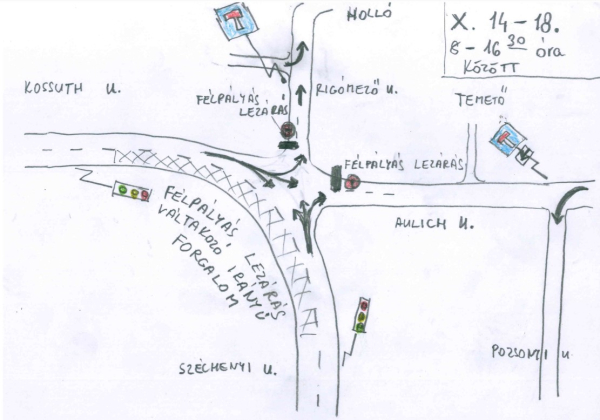 HOLLÓ
X. 14-18.
8 - 16 30 óra
KÖZÖTT
KOSSUTH U.
FÉLPÁLYÁS
LEZÁRÁS
RIGÓMEZŐ U.
TEMETŐ
FÉLPÁLYÁS LEZÁRÁS
FÉLPÁLYÁS LEZÁRÁS
VÁLTAKOZÓ IRÁNYÚ
FORGALOM
AULICH U.
SZÉCHENYI U.
POZSONYI U.